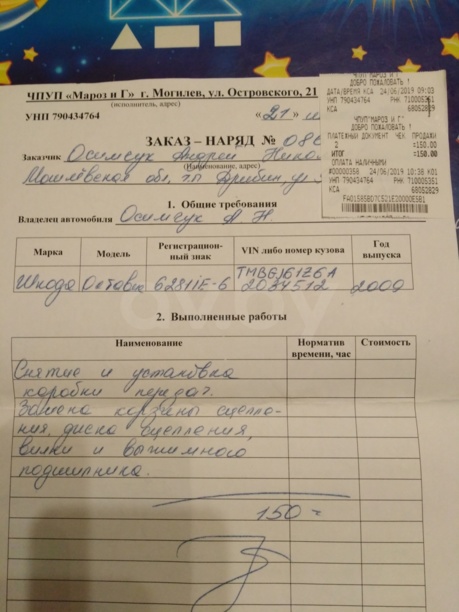 ЧПУП «Мароз и Г» г. Могилев, ул. Островского, 21
(исполнитель, адрес)
УНП 790434764
«21»
ЗАКАЗ – НАРЯД № 086
Заказчик Осимсук Андрей Нико
(Наименование, адрес)
Могилёвская обл, г.п Дрибин, ул
1. Общие требования
Владелец автомобиля Осимсук А Н.
Марка Модель Регистрацион-ный знак VIN либо номер кузова Год выпуска
Шкода Октавия 6281IE-6 TMBGJ61Z6A 2034512 2009
2. Выполненные работы
Наименование Норматив времени, час Стоимость
Снятие и установка
коробки передач.
Замена корзины сцепле-
ния, диска сцепления,
вилки и выжимного
подшипника.
150=
ЧПУП"МАРОЗ И Г"
ДОБРО ПОЖАЛОВАТЬ !
ДАТА/ВРЕМЯ КСА 24/06/2019 09:03
УНП 790434764 РНК 710005351
КСА 68052829
ЧПУП"МАРОЗ И Г"
ДОБРО ПОЖАЛОВАТЬ !
ПЛАТЕЖНЫЙ ДОКУМЕНТ ЧЕК ПРОДАЖИ
2 =150.00
ИТОГ =150.00
ОПЛАТА НАЛИЧНЫМИ
#00000358 24/06/2019 10:38 К01
УНП 790434764 РНК 710005351
КСА 68052829
av.by